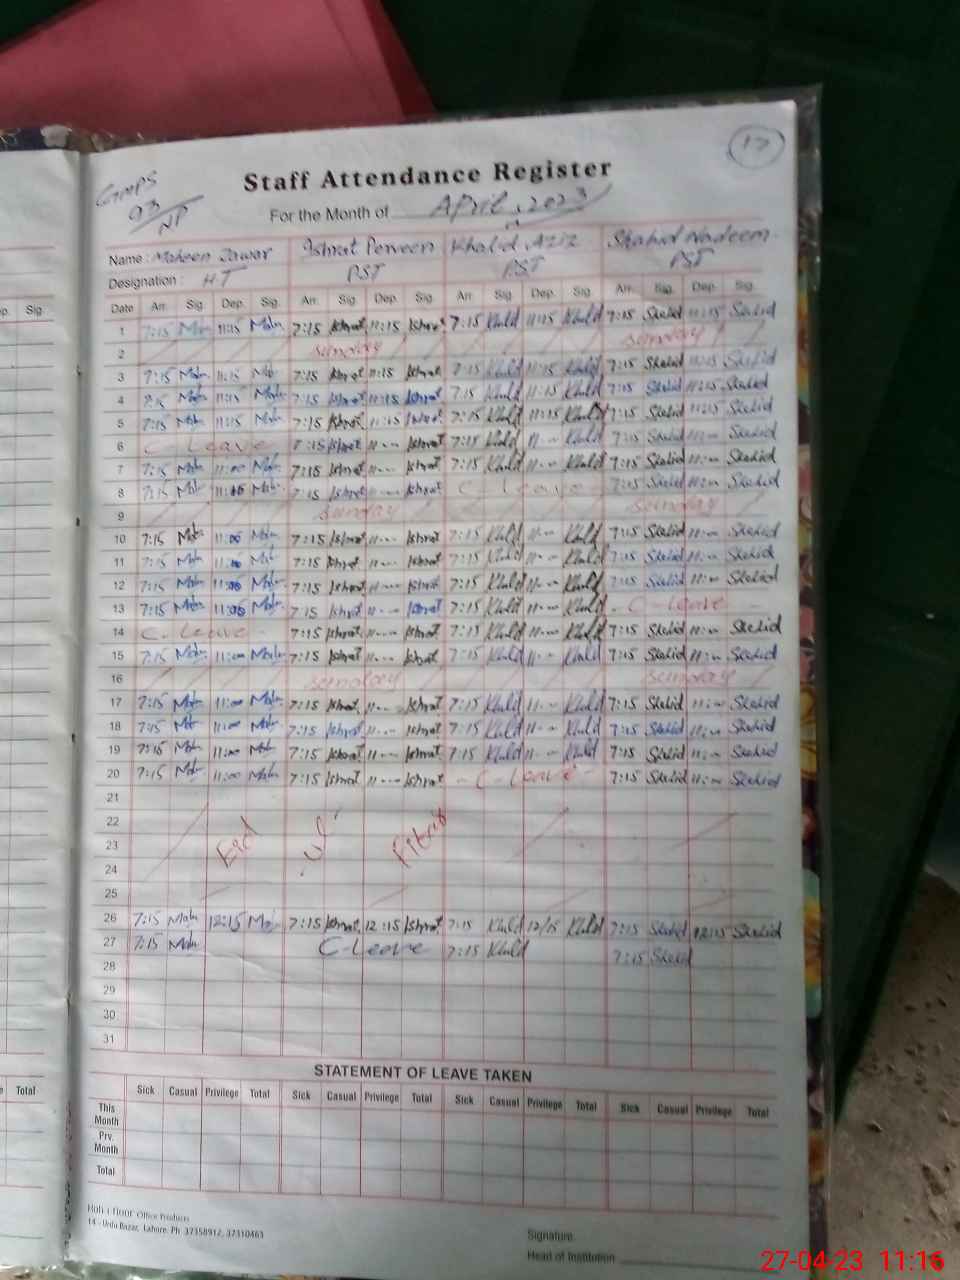 17
GMPS
93/NP
Staff Attendance Register
For the Month of April, 2023
Name : Maheen Zawar Ishrat Perveen Khalid Aziz Shahid Nadeem
Designation : HT PST PST PST
p. Sig. Date Arr. Sig. Dep. Sig. Arr. Sig. Dep. Sig. Arr. Sig. Dep. Sig. Arr. Sig. Dep. Sig.
1 7:15 11:15 7:15 Ishrat 11:15 Ishrat 7:15 Khald 11:15 Khald 7:15 Shahid 11:15 Shahid
2 Sunday Sunday
3 7:15 11:15 7:15 Ishrat 11:15 Ishrat 7:15 Khald 11:15 Khald 7:15 Shahid 11:15 Shahid
4 11:15 7:15 Ishrat 11:15 Ishrat 7:15 Khald 11:15 Khald 7:15 Shahid 11:15 Shahid
5 7:15 11:15 7:15 Ishrat 11:15 Ishrat 7:15 Khald 11:15 Khald 7:15 Shahid 11:15 Shahid
6 C-Leave 7:15 Ishrat 11 Ishrat 7:15 Khald 11 Khald 7:15 Shahid 11: Shahid
7 7:15 11:00 7:15 Ishrat 11 Ishrat 7:15 Khald 11 Khald 7:15 Shahid 11: Shahid
8 7:15 7:15 Ishrat 11 Ishrat C-Leave 7:15 Shahid 11: Shahid
9 Sunday Sunday
10 7:15 11:00 7:15 Ishrat 11 Ishrat 7:15 Khald 11 Khald 7:15 Shahid 11: Shahid
11 7:15 11:00 7:15 Ishrat 11 Ishrat 7:15 Khald 11 Khald 7:15 Shahid 11: Shahid
12 7:15 7:15 Ishrat 11 Ishrat 7:15 Khald 11 Khald 7:15 Shahid 11: Shahid
13 7:15 7:15 Ishrat 11 Ishrat 7:15 Khald 11 Khald C-Leave
14 C-Leave 7:15 Ishrat 11 Ishrat 7:15 Khald 11 Khald 7:15 Shahid 11: Shahid
15 7:15 11:00 7:15 Ishrat 11 Ishrat 7:15 Khald 11 Khald 7:15 Shahid 11: Shahid
16 Sunday Sunday
17 7:15 11:00 7:15 Ishrat 11 Ishrat 7:15 Khald 11 Khald 7:15 Shahid 11: Shahid
18 7:15 11:00 7:15 Ishrat 11 Ishrat 7:15 Khald 11 Khald 7:15 Shahid 11: Shahid
19 7:15 11:00 7:15 Ishrat 11 Ishrat 7:15 Khald 11 Khald 7:15 Shahid 11: Shahid
20 7:15 11:00 7:15 Ishrat 11 Ishrat C-Leave 7:15 Shahid 11: Shahid
21
22
23 Eid ul Fitrit
24
25
26 7:15 12:15 7:15 Ishrat 12:15 Ishrat 7:15 Khald 12/15 Khald 7:15 Shahid 12:15 Shahid
27 7:15 C-Leave 7:15 Khald 7:15 Shahid
28
29
30
31
STATEMENT OF LEAVE TAKEN
Total Sick Casual Privilege Total Sick Casual Privilege Total Sick Casual Privilege Total Sick Casual Privilege Total
This Month
Prv. Month
Total
Office Products
14 - Urdu Bazar, Lahore. Ph: 37358912, 37310463
Signature
Head of Institution
27-04-23 11:16